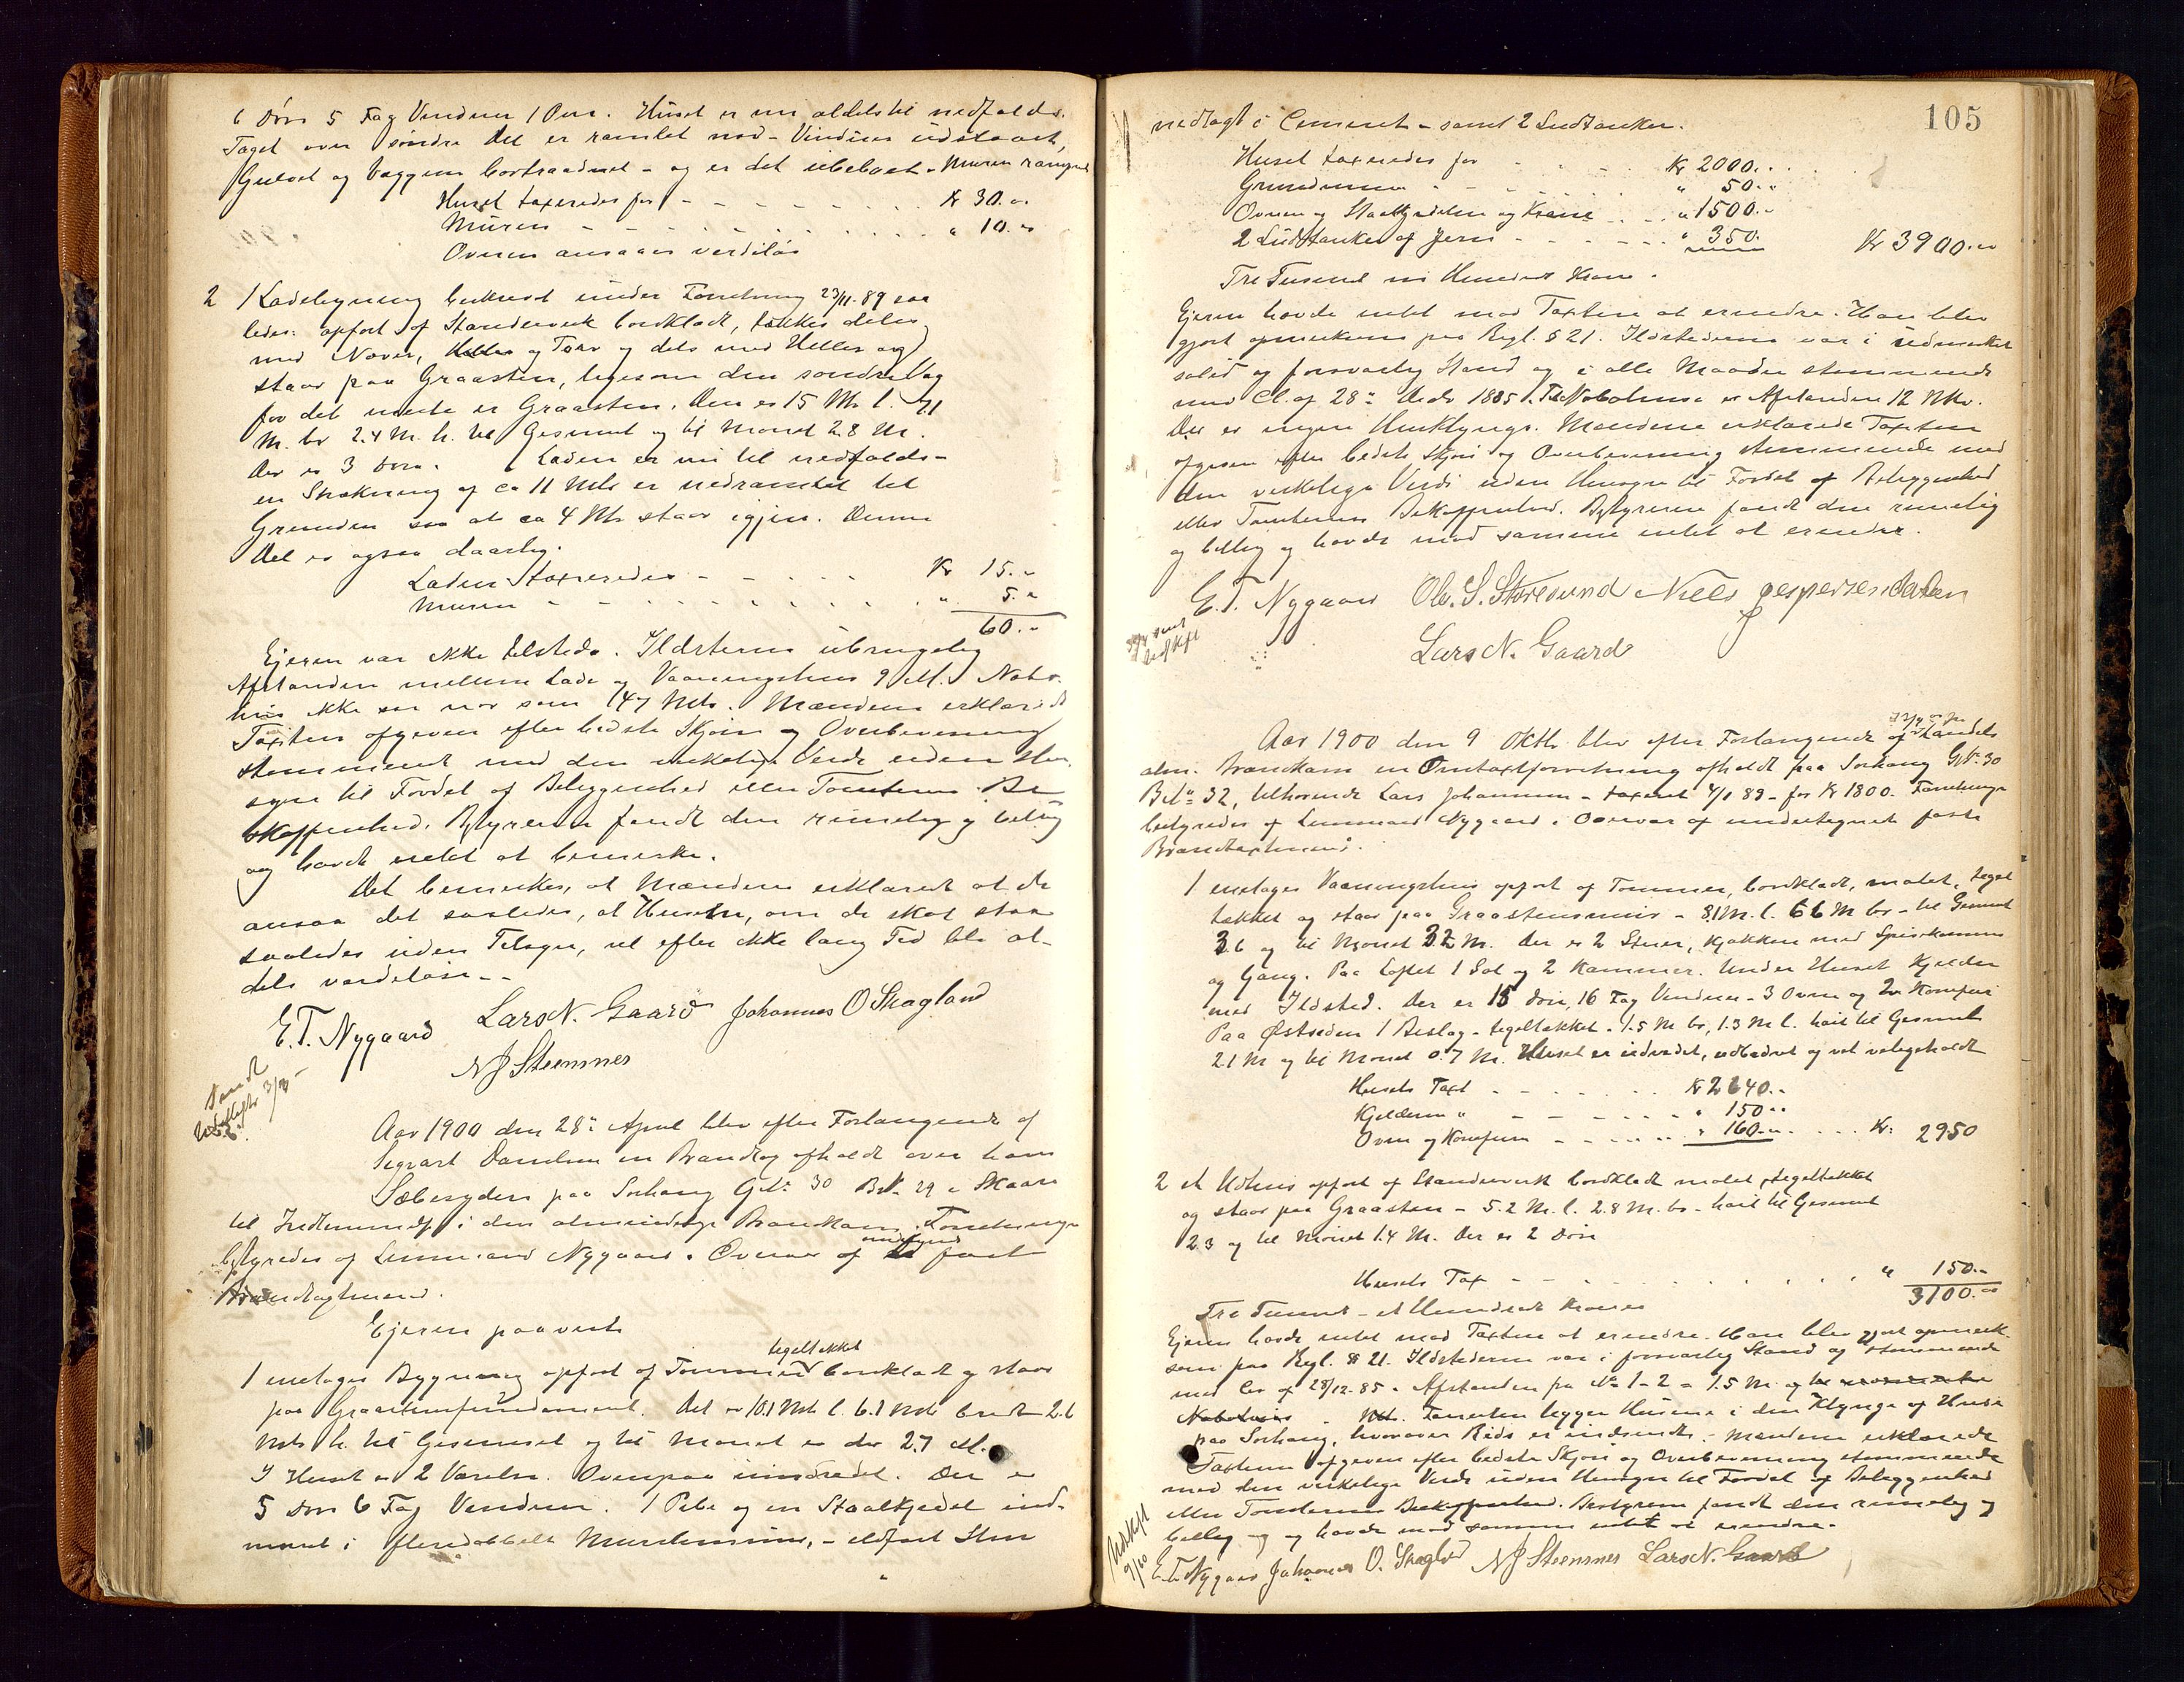 6 Döre 5 Fag Vinduer 1 Ovn. Huset er nu aldeles til nedfalds.
Taget over söndre Del er ramlet ned - Vinduer udslaaet,
Gulvet og Væggene bortraadnet - og er det ubeboet. Muren
Huset taxeredes for - - - - Kr 30.00
Muren - - - - " 10.00
Ovnen ansaaes verdilös
2 1 Ladebygning beskrevet under Forretning 23/11-89 saa
ledes: opfört af Stænderverk bordklædt, tækket dels
med Næver, Heller og Törv og dels med Heller og
staar paa Graasten, ligesom den söndre Væg
for det meste er Graasten. Den er 15 Mtr l. 7.1
M. br 2.4 M. h. til Gesimset og til Mönet 2.8 M.
Der er 3 Döre. Laden er nu til nedfalds-
en Strækning af ca 11 Mtr er nedramlet til
Grunden saa at ca 4 Mtr staar igjen. Denne
Del er ogsaa daarlig.
Laden taxeredes - - - - Kr 15.-
Muren - - - - " 5."
60.-
Ejeren var ikke tilstede. Ildsterne ubrugelig
Afstanden mellem Lade og Vaaningshus 9 M. Nabo-
hus ikke saa nær som 47 Mtr. Mændene erklærede
Taxten opgiven efter bedste Skjön og Overbevisning
stemmende med den virkelige Verdi uden Hen-
syn til Fordel af Beliggenhed eller Tomtens Be-
skaffenhed. Bestyreren fandt den rimelig og billig
og havde intet at bemerke.
Det bemerkes, at Mændene erklærede at de
ansaa det saaledes, at Husene, om de skal staa
saaledes uden Tilsyn, vil efter ikke lang Tid bli al-
deles værdilöse.-
E. T. Nygaard Lars N. Gaard Johannes O Skagland
N J Steensnes
Sendt
Udskrift 3/3-
Aar 1900 den 28: April blev efter Forlangende af
Sigvart Danielsen en Brandtax afholdt over hans
Sæbesyderi paa Sörhaug G.No 30 B.No 29 i Skaare
til Indlemmelse i den almindelige Brandkasse. Forretningen
bestyredes af Lensmand Nygaard i Overvær af undertegnede faste
Brandtaxtmænd.
Ejeren paaviste
1 enetages Bygning opfört af Tömmer tegeltækket bordklædt og staar
paa Graastensfundament. Det er 10.1 Mtr l. 6.1 Mtr bredt 2.6
Mtr h. til Gesimset og til Mönet er der 2.7 M.
I Huset er 2 Værelser. Ovenpaa uindredet. Der er
5 Döre 6 Fag Vinduer. 1 Pibe og en Staalkjedel ind-
muret i fleredobbelt Murstensmur, - ildfast Sten
105
nedlagt i Cement - samt 2 Ludtanker.
Huset taxeredes for - - - - Kr 2000.-
Grundmuren - - - - " 50.-
Ovnen og Staalkjedelen og Krane - - " 1500.-
2 Ludtanker af Jern - - - - " 350. Kr 3900.00
Tre Tusend ni Hundrede Kroner.
Ejeren havde intet mod Taxten at erindre. Han blev
gjort opmerksom paa Regl. § 21. Ildstederne var i udmerket
solid og forsvarlig Stand og i alle Maader stemmende
med Cl. af 28: Decbr 1885. Til Nabohuse er Afstanden 12 Mtr.
Der er ingen Husklynge. Mændene erklærede Taxten
opgiven efter bedste Skjön og Overbevisning stemmende med
den virkelige Verdi uden Hensyn til Fordel af Beliggenhed
eller Tomtens Beskaffenhed. Bestyreren fandt den rimelig
og billig og havde mod samme intet at erindre.
E. T. Nygaard Ole. S. Storesund Niels Jespersen Dahlen
Lars N. Gaard
sendt
Udskft
Aar 1900 den 9 Oktbr blev efter Forlangende af Landets
alm. Brandkasse en Omtaxtforretning afholdt paa Sörhaug G.No 30
B.No 32, tilhörende Lars Johannesen - taxeret 4/1 89 - for Kr 1800. Forretningen
bestyredes af Lensmand Nygaard i Overvær af undertegnede faste
Brandtaxtmænd.
1 enetages Vaaningshus opfört af Tömmer, bordklædt, malet, tegel
tækket og staar paa Graastensmur - 8.1 M. l. 6.6 M br - til Gesimset
3.6 og til Mönet 3.2 M. Der er 2 Stuer, Kjökken med Spisekammer
og Gang. Paa Loftet 1 Sal og 2 Kammer. Under Huset Kjelder
med Ildsted. Der er 15 Döre, 16 Fag Vinduer - 3 Ovne og 2 Komfur
Paa Östsiden 1 Bislag - tegeltækket - 1.5 M br, 1.3 M l. höit til Gesimset
2.1 M og til Mönet 0.7 M. Huset er udvidet, udbedret og vel vedligeholdt
Husets Taxt - - - - Kr 2640.-
Kjelderen " - - - - " 150.-
Ovne og Komfurer - - - - " 160.- - - Kr: 2950
2 et Udhus opfört af Stænderverk bordklædt malet, tegeltækket
og staar paa Graasten - 5.2 M. l. 2.8 M. br - höit til Gesimset
2.3 og til Mönet 1.4 M. Der er 2 Döre
Husets Tax - - - - " 150.-
3100.00
Tre Tusend - et Hundrede Kroner
Ejeren havde intet mod Taxten at erindre. Han blev gjort opmerk-
som paa Regl. § 21. Ildstederne var i forsvarlig Stand og stemmende
med Lov af 28/12-85. Afstanden fra No 1-2 = 1.5 M. og til nærmeste
Nabohus - Mtr. Forresten ligger Husene i den Klynge af Huse
paa Sörhaug, hvorover Rids er indsendt. Mændene erklærede
Taxten opgiven efter bedste Skjön og Overbevisning stemmende
med den virkelige Verdi uden Hensyn til Fordel af Beliggenhed
eller Tomtens Beskaffenhed. Bestyreren fandt den rimelig og
billig og havde mod samme intet at erindre.
Udskft
9/10
E. T. Nygaard Johannes O. Skagland N J Steensnes Lars N. Gaard